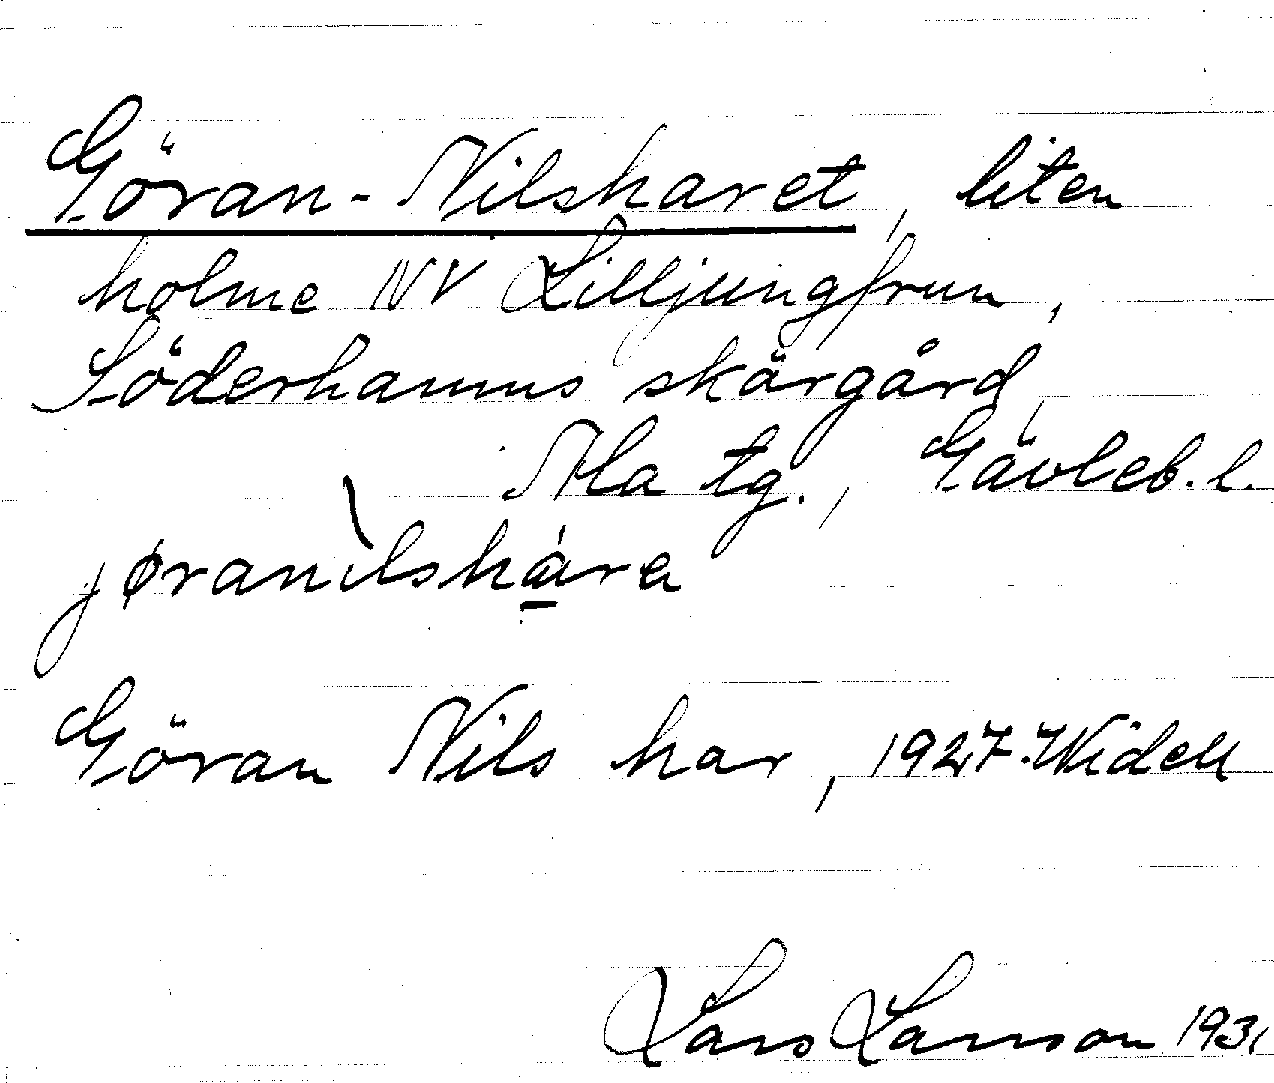 Göran-Nilsharet, liten
holme NV Lilljungfrun,
Söderhamns skärgård,
Ala tg., Gävleb. l.
jøranìlshára
Göran Nils har, 1927. Widell
Lars Larsson 1931